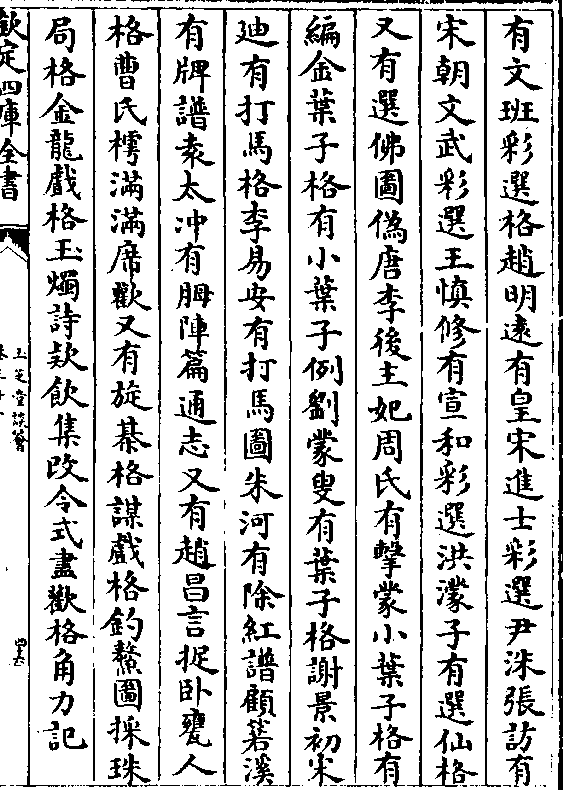 有文班彩選格趙明遠有皇宋進士彩選尹洙張訪有
宋朝文武彩選王慎修有宣和彩選洪濛子有選仙格
又有選佛圖偽唐李後主妃周氏有擊蒙小葉子格有
編金葉子格有小葉子例劉蒙叟有葉子格謝景初宋
迪有打馬格李易安有打馬圖朱河有除紅譜顧箬溪
有牌譜袁太冲有胟陣篇通志又有趙昌言捉卧甕人
格曹氏樗滿滿席歡又有旋棊格謀戲格釣鰲圖採珠
局格金龍戲格玉燭詩欵飲集改令式盡歡格角力記
欽定四庫全書
玉芝堂談薈